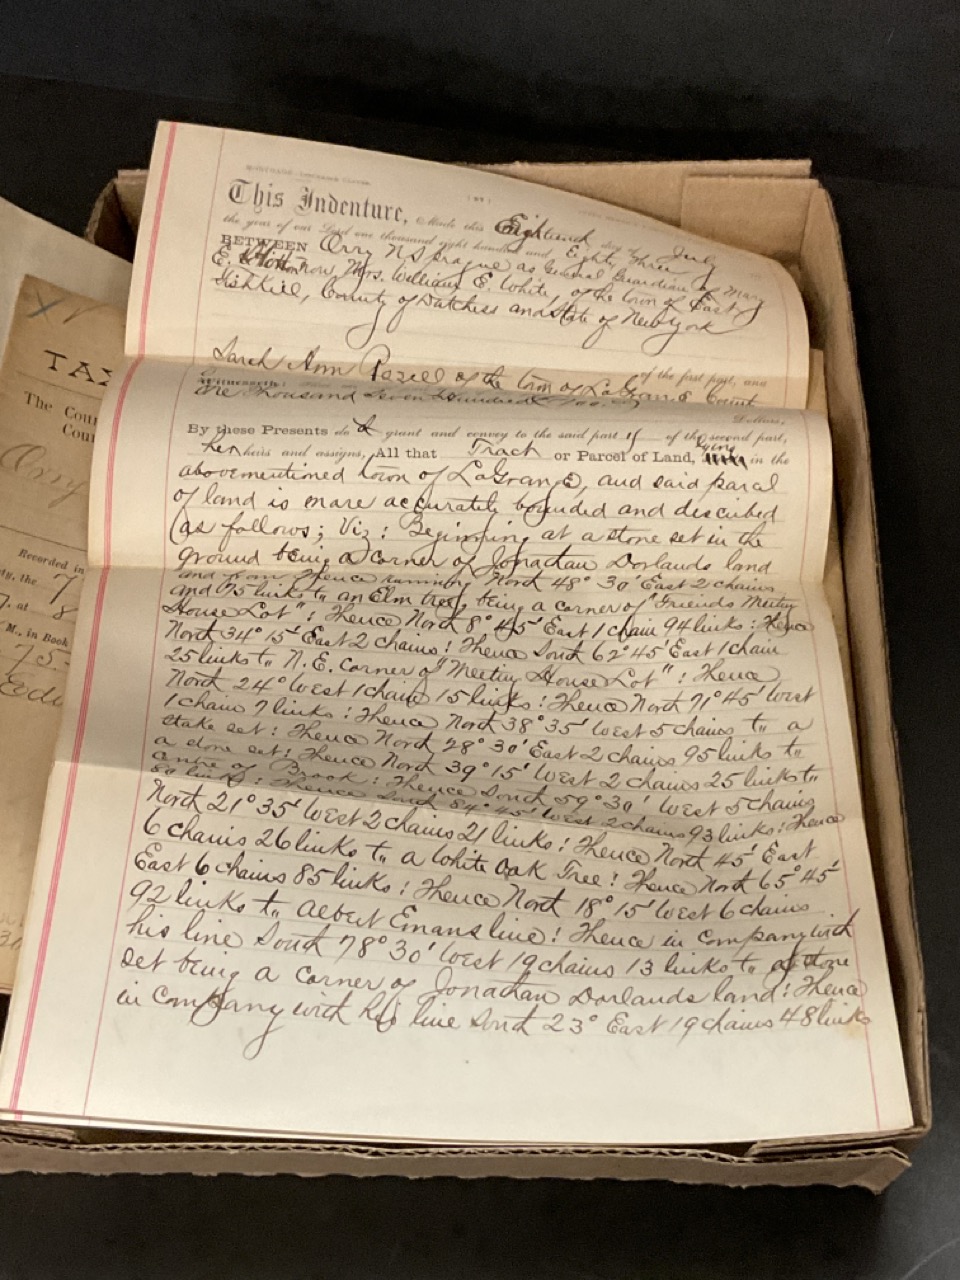 TAX
The Coun
Coun
Recorded in
ty, the 7
at 8
M., in Book
75
This Indenture, Made this Eighteenth day of July
the year of our Lord one thousand eight hundred and Eighty Three
BETWEEN Orry N Sprague as General Guardian of Mary
E. now Mrs. William E. White, of the town of East
Fishkill, County of Dutchess and State of New York
of the first part, and
Sarah Ann of the town of LaGrange
Witnesseth:
One Thousand Seven Hundred Dollars,
By these Presents do grant and convey to the said part y of the second part,
her heirs and assigns, All that Tract or Parcel of Land, lying in the
abovementioned town of LaGrange, and said parcal
of land is more accurately bounded and discribed
as follows; Viz: Beginning at a stone set in the
ground being a corner of Jonathan Dorlands land
and from thence running North 48° 30' East 2 chains
and 75 links to an Elm tree, being a corner of "Friends Meeting
House Lot": Thence North 8° 45' East 1 chain 94 links: Thence
North 34° 15' East 2 chains: Thence South 62° 45' East 1 chain
25 links to N.E. corner of "Meeting House Lot": Thence
North 24° West 1 chain 15 links: Thence North 71° 45' West
1 chain 7 links: Thence North 38° 35' West 5 chains to a
stake set: Thence North 28° 30' East 2 chains 95 links to
a stone set: Thence North 39° 15' West 2 chains 25 links to
centre of Brook: Thence South 59° 30' West 5 chains
80 links: Thence South 84° 45' West 2 chains 93 links: Thence
North 21° 35' West 2 chains 21 links: Thence North 45' East
6 chains 26 links to a White Oak Tree: Thence North 65° 45'
East 6 chains 85 links: Thence North 18° 15' West 6 chains
92 links to Albert Emans line: Thence in company with
his line South 78° 30' West 19 chains 13 links to a stone
set being a corner of Jonathan Dorlands land: Thence
in company with his line South 23° East 19 chains 48 links